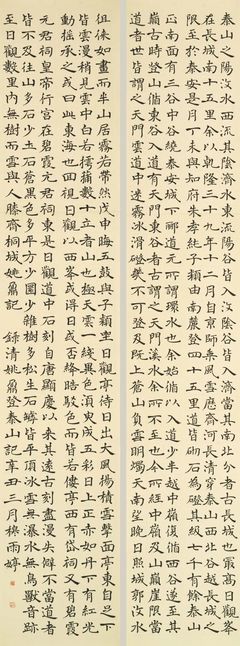 泰山之陽汶水西流其陰濟水東流陽谷皆入汶陰谷皆入濟當其南北分者古長城也最高日觀峯
在長城南十五里余以乾隆三十九年十二月自京師乘風雪歷齊河長清穿泰山西北谷越長城之
限至於泰安是月丁未與知府朱孝純子潁由南麓登四十五里道皆砌石為磴其級七千有餘泰山
正南面有三谷中谷繞泰安城下酈道元所謂環水也余始循以入道少半越中嶺復循西谷遂至其
巔古時登山循東谷入道有天門東谷者古謂之天門溪水余所不至也今所經中嶺及山巔崖限當
道者世皆謂之天門雲道中迷霧冰滑磴幾不可登及既上蒼山負雪明燭天南望晚日照城郭汶水
徂徠如畫而半山居霧若帶然戊申晦五鼓與子潁坐日觀亭待日出大風揚積雪擊面亭東自足下
皆雲漫稍見雲中白若摴蒱數十立者山也極天雲一線異色須臾成五彩日上正赤如丹下有紅光
動搖承之或曰此東海也回視日觀以西峯或得日或否絳皓駁色而皆若僂亭西有岱祠又有碧霞
元君祠皇帝行宮在碧霞元君祠東是日觀道中石刻自唐顯慶以來其遠古刻盡漫失僻不當道者
皆不及往山多石少土石蒼黑色多平方少圜少雜樹多松生石罅皆平頂冰雪無瀑水無鳥獸音跡
至日觀數里內無樹而雪與人膝齊桐城姚鼐記 錄清姚鼐登泰山記辛丑三月 雨婷